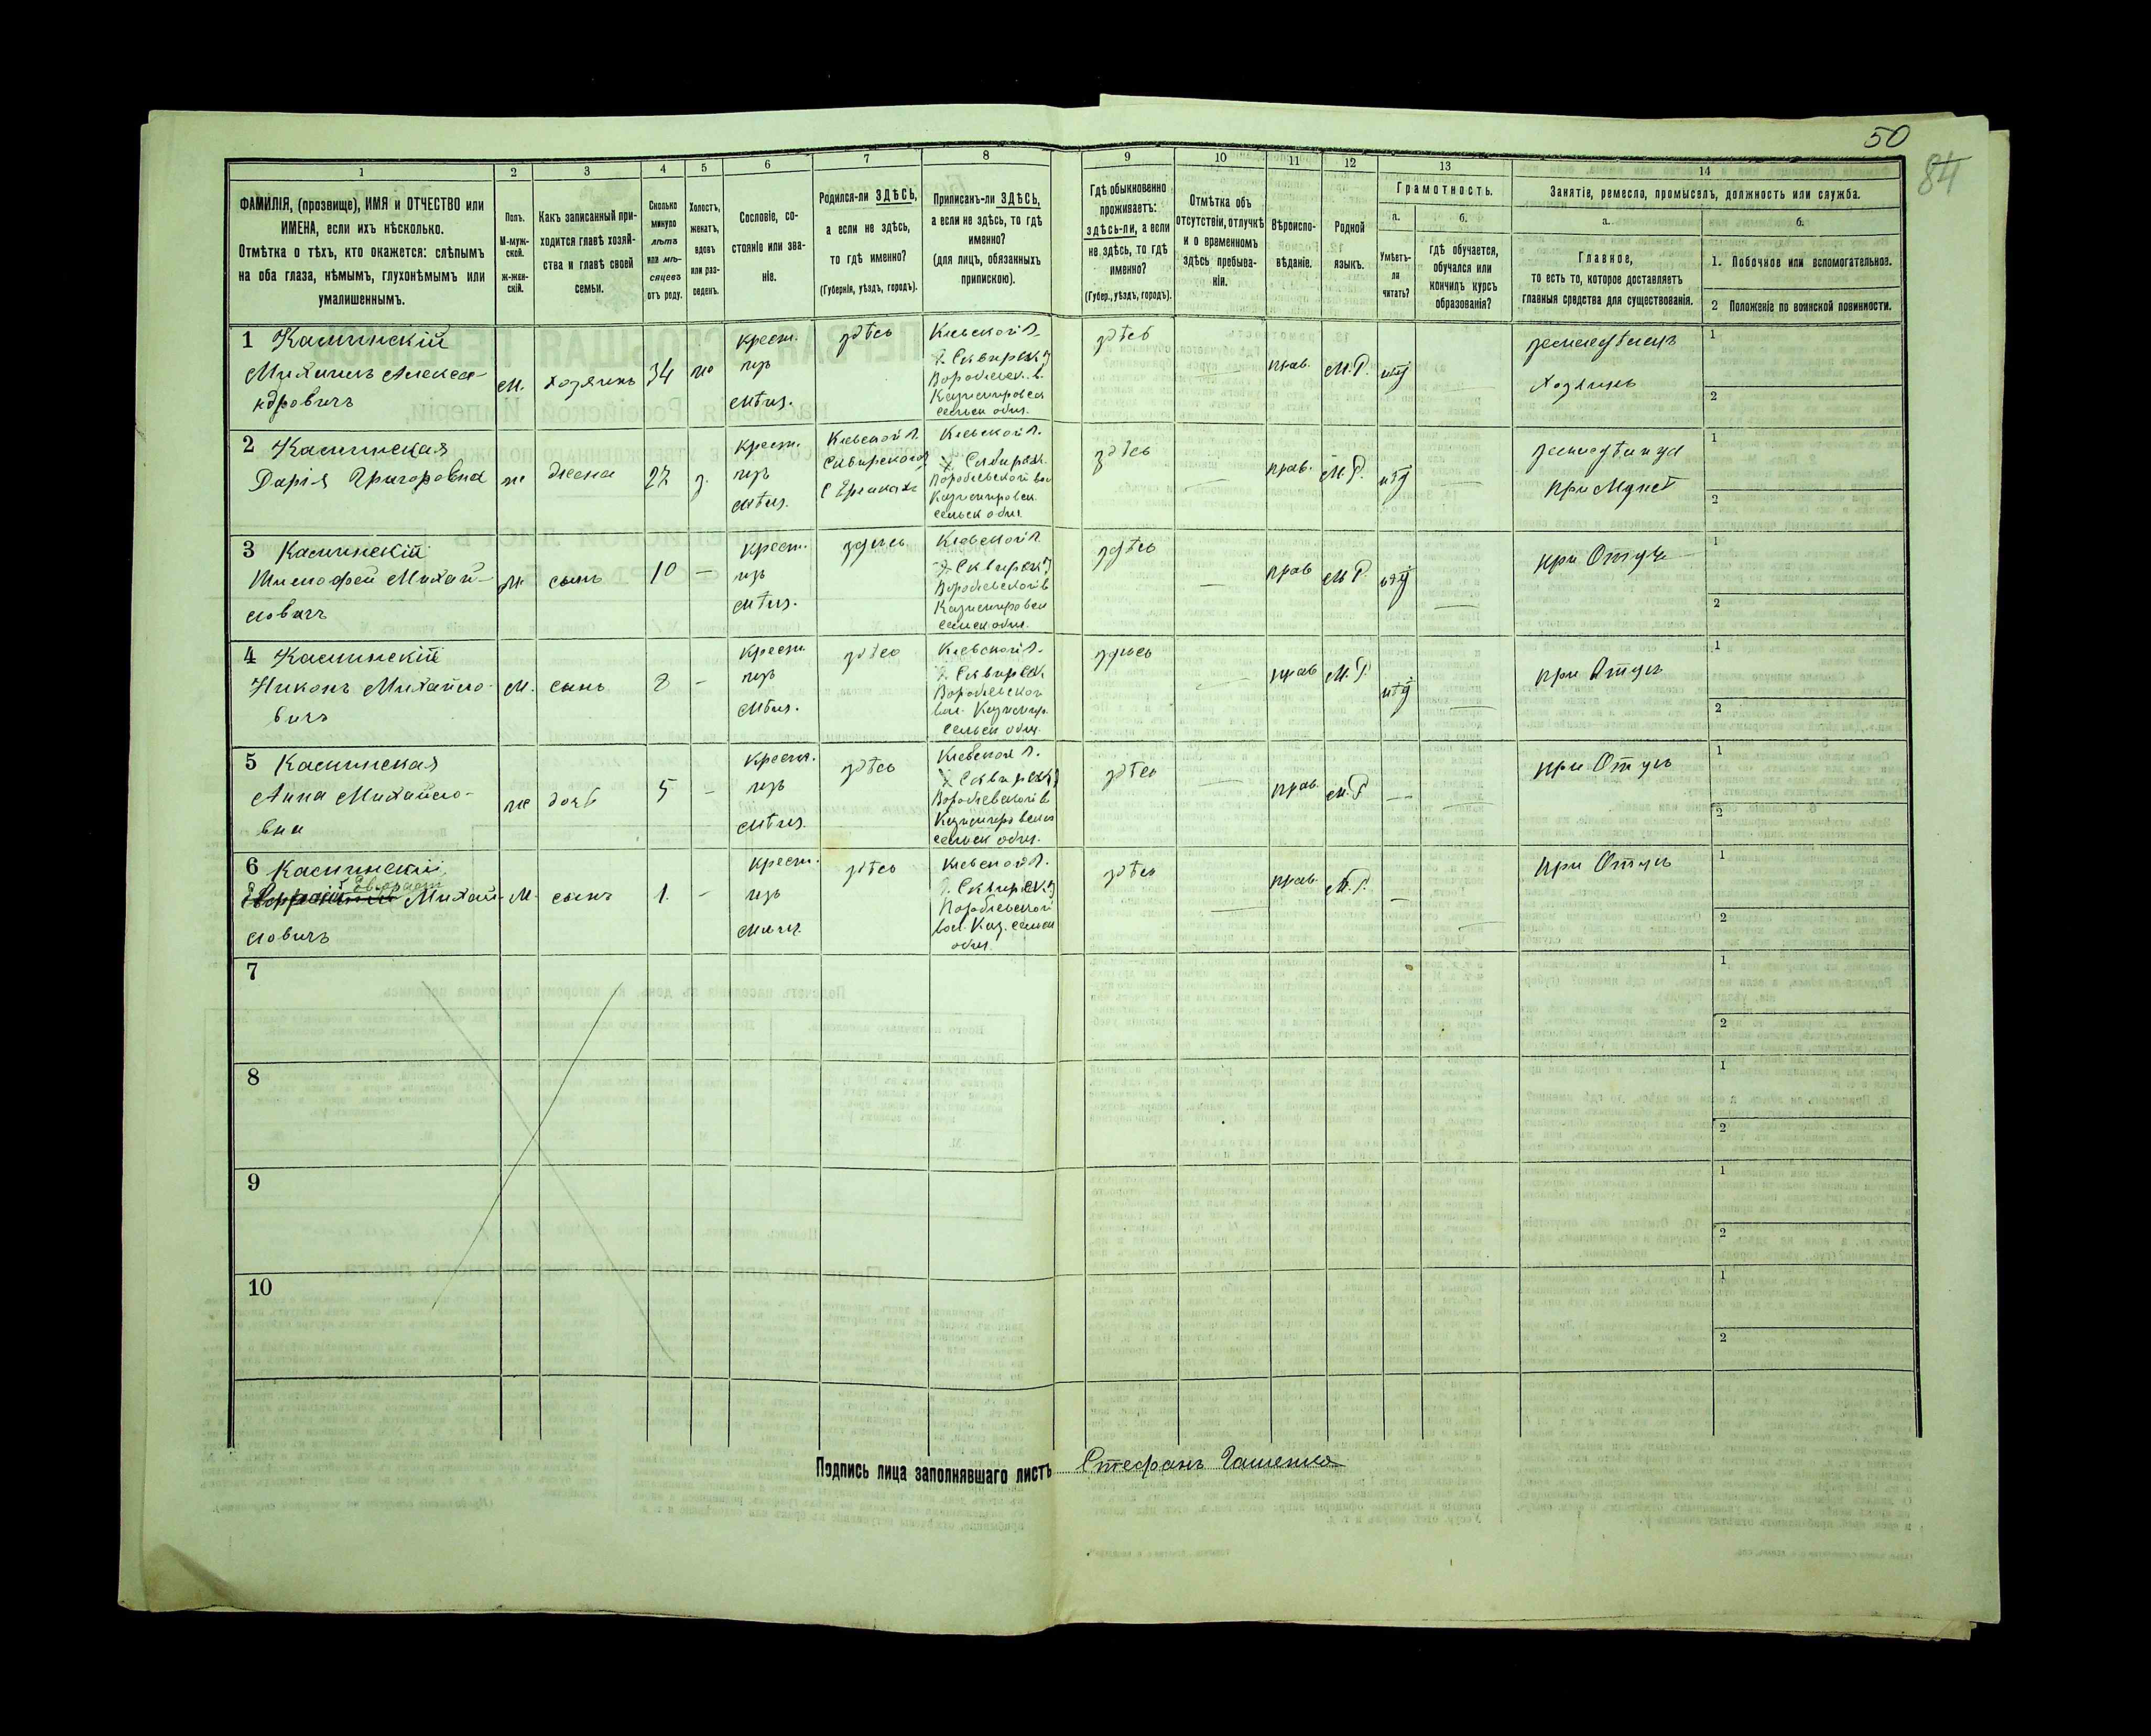 50
84
1
2
3
4
5
6
7
8
9
10
11
12
13
14
ФАМИЛІЯ, (прозвище), ИМЯ и ОТЧЕСТВО или
ИМЕНА, если ихъ нѣсколько.
Отмѣтка о тѣхъ, кто окажется: слѣпымъ
на оба глаза, нѣмымъ, глухонѣмымъ или
умалишеннымъ.
Полъ.
М-муж-
ской.
Ж-жен-
скій.
Какъ записанный при-
ходится главѣ хозяй-
ства и главѣ своей
семьи.
Сколько
минуло
лѣтъ
или мѣ-
сяцевъ
отъ роду.
Холостъ,
женатъ,
вдовъ
или раз-
веденъ.
Сословіе, со-
стояніе или зва-
ніе.
Родился-ли ЗДѢСЬ,
а если не здѣсь,
то гдѣ именно?
(Губернія, уѣздъ, городъ).
Приписанъ-ли ЗДѢСЬ,
а если не здѣсь, то гдѣ
именно?
(для лицъ, обязанныхъ
припискою).
Гдѣ обыкновенно
проживаетъ:
здѣсь-ли, а если
не здѣсь, то гдѣ
именно?
(Губер., уѣздъ, городъ).
Отмѣтка объ
отсутствіи, отлучкѣ
и о временномъ
здѣсь пребыва-
ніи.
Вѣроиспо-
вѣданіе.
Родной
языкъ.
Грамотность.
а.
б.
Умѣетъ-
ли
читать?
гдѣ обучается,
обучался или
кончилъ курсъ
образованія?
Занятіе, ремесло, промыселъ, должность или служба.
а.
б.
Главное,
то есть то, которое доставляетъ
главныя средства для существованія.
1. Побочное или вспомогательное.
2 Положеніе по воинской повинности.
1 Калинскій
Михаилъ Алекса-
ндровичъ
м. хозяинъ 34 же
крест.
изъ
мѣщ.
здѣсь
Кіевской г.
у. Сквирск.
Воробіевск. в.
Казимировск
сельск общ.
здѣсь
—
прав. М.Р. нѣт —
земледѣлецъ
хозяинъ
1
2
2 Калинская
Дарія Григоровна
ж жена 27 з.
крест.
изъ
мѣщ.
Кіевской г.
Сквирского у
Кіевской г.
у. Сквирск.
Воробіевской вол
Казимировск.
сельск общ.
здѣсь
—
прав. М.Р. нѣт —
при Мужѣ
1
2
3 Калинскій
Тимофей Михай-
ловичъ
м. сынъ 10 —
крест.
изъ
мѣщ.
здѣсь
Кіевской г.
у. Сквирск.
Воробіевской в
Казимировск
сельск общ.
здѣсь
—
прав М.Р. нѣт —
при Отцѣ
1
2
4 Калинскій
Никонъ Михайло-
вичъ
м. сынъ 8 —
крест.
изъ
мѣщ.
здѣсь
Кіевской г.
у. Сквирск.
Воробіевской
вол. Казимир.
сельск общ.
здѣсь
—
прав М.Р. нѣт —
при Отцѣ
1
2
5 Калинская
Анна Михайло-
вна
ж дочь 5 —
крест.
изъ
мѣщ.
здѣсь
Кіевской г.
у. Сквирск.
Воробіевской в.
Казимировской
сельск общ.
здѣсь
—
прав. М.Р —
при Отцѣ
1
2
6 Калинскій
Михай-
ловичъ
м. сынъ 1. —
крест.
изъ
мѣщ.
здѣсь
Кіевской г.
у. Сквирск.
Воробіевской
вол. Каз. сельск
общ.
здѣсь
—
прав. М.Р. — —
при Отцѣ
1
2
7
1
2
8
1
2
9
1
2
10
1
2
Подпись лица заполнявшаго листъ Стефанъ